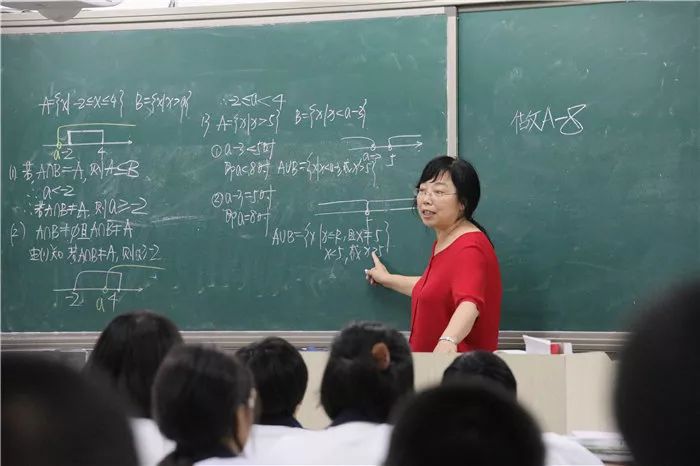 A={x|-2≤x≤4} B={x|x>a}
a -2 4
(1) 若A∩B=A, 则A⊆B
∴a<-2
∴若A∩B≠A, 则a≥-2
(2) A∩B≠∅且A∩B≠A
由(1)知 若A∩B≠A, 则a≥-2
-2 a 4
∴-2≤a<4
A={x|x>5} B={x|x<a-3}
①a-3<5时
即a<8时 A∪B={x|x<a-3,或x>5}
a-3 5
②a-3=5时
即a=8时
5
A∪B={x|x∈R,且x≠5}
x<5,或x>5
A-8